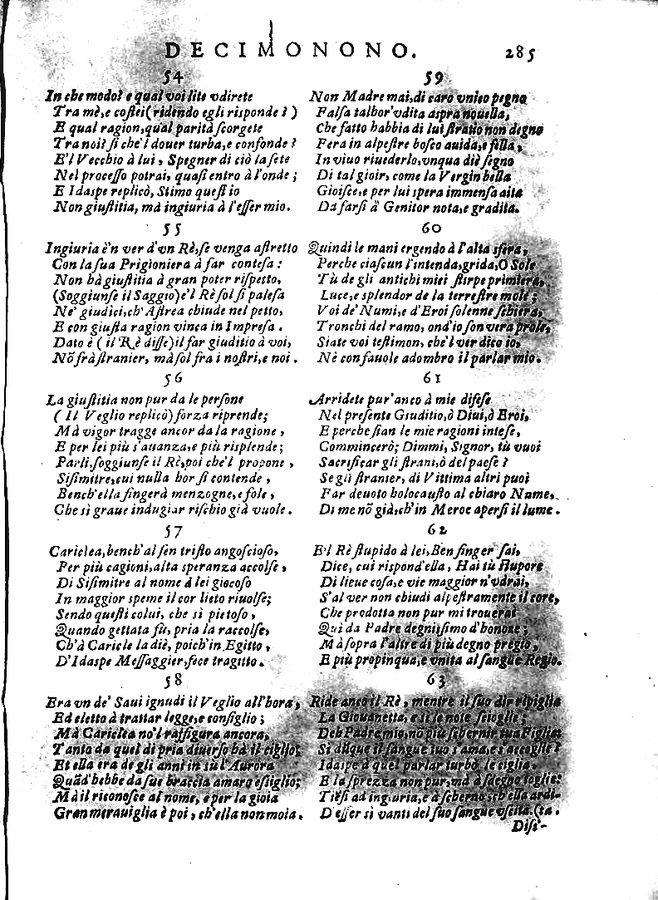 DECIMONONO. 285
54
In che modo? e qual voi lite vdirete
Tra mè, e costei (ridendo egli risponde?)
E qual ragion, qual parità scorgete
Tra noi? sì che'l douer turba, e confonde?
E'l Vecchio à lui, Spegner di ciò la sete
Nel processo potrai, quasi entro à l'onde;
E Idaspe replicò, Stimo quest' io
Non giustitia, mà ingiuria à l'esser mio.
55
Ingiuria è'n ver d'vn Rè, se venga astretto
Con la sua Prigioniera à far contesa:
Non bà giustitia à gran poter rispetto,
(Soggiunse il Saggio) e'l Rè sol si palesa
Ne' giudici, ch'Astrea chiude nel petto,
E con giusta ragion vinca in Impresa.
Dato è (il Rè disse) il far giuditio à voi,
Nõ frà stranier, mà sol fra i nostri, e noi.
56
La giustitia non pur da le persone
(Il Veglio replicò) forza riprende;
Mà vigor tragge ancor da la ragione,
E per lei più s'auanza, e più risplende;
Parli, soggiunse il Rè, poi che'l propone,
Sisimitre, cui nulla hor si contende,
Bench'ella fingerà menzogne, e fole,
Che sì graue indugiar rischio già vuole.
57
Cariclea, bench'al sen tristo angoscioso,
Per più cagioni, alta speranza accolse,
Di Sisimitre al nome à lei giocoso
In maggior speme il cor lieto riuolse;
Sendo questi colui, che sì pietoso,
Quando gettata fù, pria la raccolse,
Ch'à Caricle la diè, poich'in Egitto,
D'Idaspe Messaggier, fece tragitto.
58
Era vn de' Saui ignudi il Veglio all'hora,
Ed eletto à trattar legge, e consiglio;
Mà Cariclea no'l raffigura ancora,
Tanto da quel di pria diuerso hà il ciglio;
Et ella era de gli anni in sù l'Aurora
Quãd'hebbe da sue braccia amaro essiglio;
Mà il riconosce al nome, e per la gioia
Gran merauiglia è poi, ch'ella non moia.
59
Non Madre mai, di caro vnico pegno
Falsa talhor' vdita aspra nouella,
Che fatto habbia di lui stratio non degno
Fera in alpestre bosco auida, e fella,
In viuo riuederlo, vnqua diè segno
Di tal gioir, come la Vergin bella
Gioisce, e per lui spera immensa aita
Da farsi à Genitor nota, e gradita.
60
Quindi le mani ergendo à l'alta sfera,
Perche ciascun l'intenda, grida, O Sole
Tù de gli antichi miei stirpe primiera,
Luce, e splendor de la terrestre mole;
Voi de' Numi, e d'Eroi solenne schiera,
Tronchi del ramo, ond'io son vera prole,
Siate voi testimon, che'l ver dico io,
Nè con fauole adombro il parlar mio.
61
Arridete pur'anco à mie difese
Nel presente Giuditio, ò Diui, ò Eroi,
E perche sian le mie ragioni intese,
Commincerò; Dimmi, Signor, tù vuoi
Sacrificar gli strani, ò del paese?
Se gli stranier, di Vittima altri puoi
Far deuoto holocausto al chiaro Nume,
Di me nõ già, ch'in Meroe apersi il lume.
62
E'l Rè stupido à lei, Ben finger sai,
Dice, cui rispond'ella, Hai tù stupore
Di lieue cosa, e vie maggior n'vdrai,
S'al ver non chiudi alpestramente il core,
Che prodotta non pur mi trouerai
Qui da Padre degnissimo d'honore;
Mà sopra l'altre di più degno pregio,
E più propinqua, e vnita al sangue Regio.
63
Ride anco il Rè, mentre il suo dir ripiglia
La Giouanetta, e sì le note scioglie;
Deh Padre mio, nò più schernir tua Figlia
Si dũque il sangue tuo s'ama, e s'accoglie?
Idaspe à quel parlar turbò le ciglia,
E la sprezza non pur, mà à sdegno toglie;
Tiẽsi ad ingiuria, e à scherno, ch'ella ardi-
D'esser sì vanti del suo sangue vscita. (ta.
Disi-